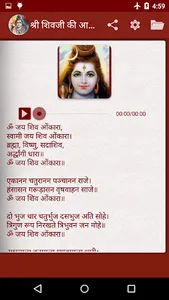 4:59
श्री शिवजी की आ...
00:00/00:00
ॐ जय शिव ओंकारा,
स्वामी जय शिव ओंकारा।
ब्रह्मा, विष्णु, सदाशिव,
अर्द्धांगी धारा॥
ॐ जय शिव ओंकारा॥
एकानन चतुरानन पञ्चानन राजे।
हंसासन गरूड़ासन वृषवाहन साजे॥
ॐ जय शिव ओंकारा॥
दो भुज चार चतुर्भुज दसभुज अति सोहे।
त्रिगुण रूप निरखते त्रिभुवन जन मोहे॥
ॐ जय शिव ओंकारा॥